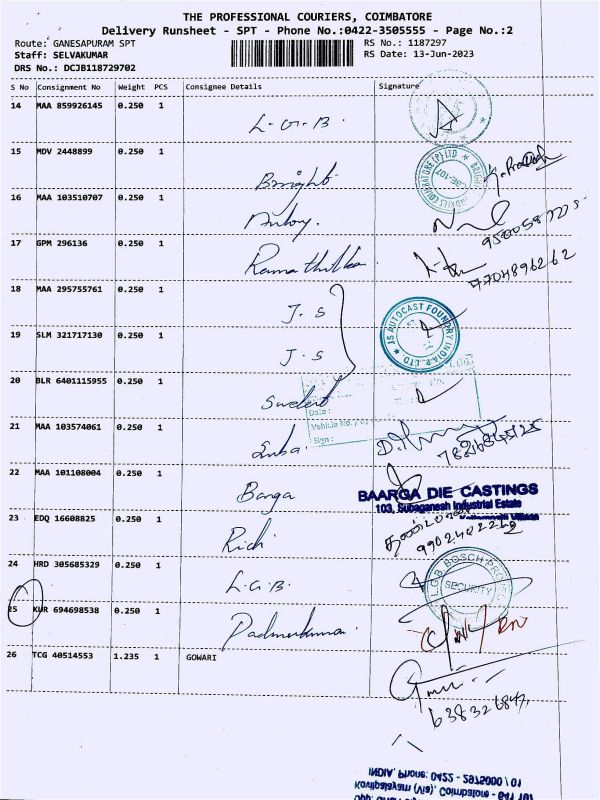 THE PROFESSIONAL COURIERS, COIMBATORE
Delivery Runsheet - SPT - Phone No.:0422-3505555 - Page No.:2
Route: GANESAPURAM SPT RS No.: 1187297
Staff: SELVAKUMAR RS Date: 13-Jun-2023
DRS No.: DCJB118729702
S No Consignment No Weight PCS Consignee Details Signature
14 MAA 859926145 0.250 1
L.G.B.
15 MDV 2448899 0.250 1
Bright
16 MAA 103510707 0.250 1
Antony
17 GPM 296136 0.250 1
9500587725
7704896262
18 MAA 295755761 0.250 1
J.S
JS AUTOCAST FOUNDRY INDIA P. LTD
19 SLM 321717130 0.250 1
J.S
20 BLR 6401115955 0.250 1
Date :
Vehicle No.
Sign :
21 MAA 103574061 0.250 1
Suba.
22 MAA 101108004 0.250 1
Barga
BAARGA DIE CASTINGS
103, Subaganesh Industrial Estate
23 EDQ 16608825 0.250 1
Rich
24 HRD 305685329 0.250 1
L.G.B.
L.G.B. BOSCH
SECURITY
25 KUR 694698538 0.250 1
Padmukumar
26 TCG 40514553 1.235 1 GOWARI
INDIA, Phone: 0422 - 2975000 / 01
Kovilpalayam (Via), Coimbatore - 641 107